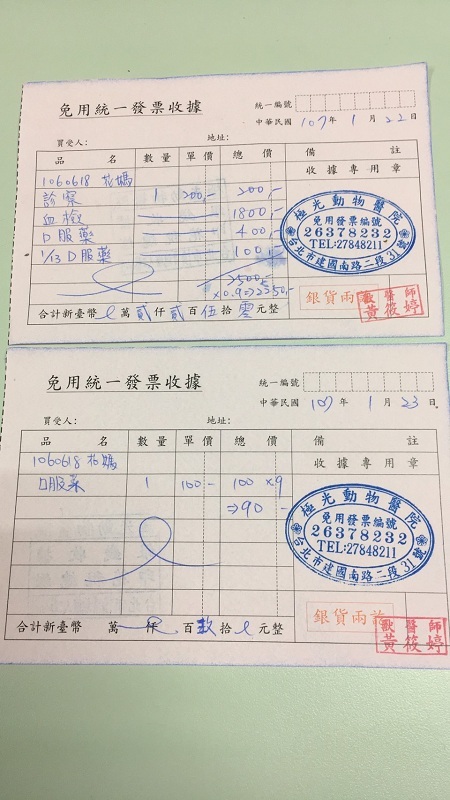 免用統一發票收據
統一編號
中華民國 107 年 1 月 22 日
買受人: 地址:
品名 數量 單價 總價 備註
收據專用章
1060618 花媽
診察 1 200,- 200,-
血檢 1800,-
口服藥 400,-
1/23 口服藥 100,-
2500,-
×0.9=>2250,-
合計新臺幣 萬 貳 仟 貳 百 伍 拾 零 元整
極光動物醫院
免用發票編號
26378232
TEL:27848211
台北市建國南路二段31號
銀貨兩訖
獸醫師
黃筱婷
免用統一發票收據
統一編號
中華民國 107 年 1 月 23 日
買受人: 地址:
品名 數量 單價 總價 備註
收據專用章
1060618 花媽
口服藥 1 100- 100 ×9
=>90 -
合計新臺幣 萬 仟 百 玖 拾 元整
極光動物醫院
免用發票編號
26378232
TEL:27848211
台北市建國南路二段31號
銀貨兩訖
獸醫師
黃筱婷